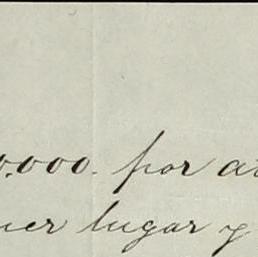 0.000. por a
uer lugar y